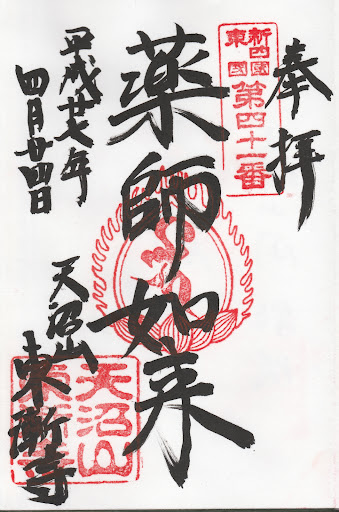 奉拝
新四國
東國
第四十一番
薬師如来
平成廿七年
四月廿四日
天沼山
東漸寺
天沼山